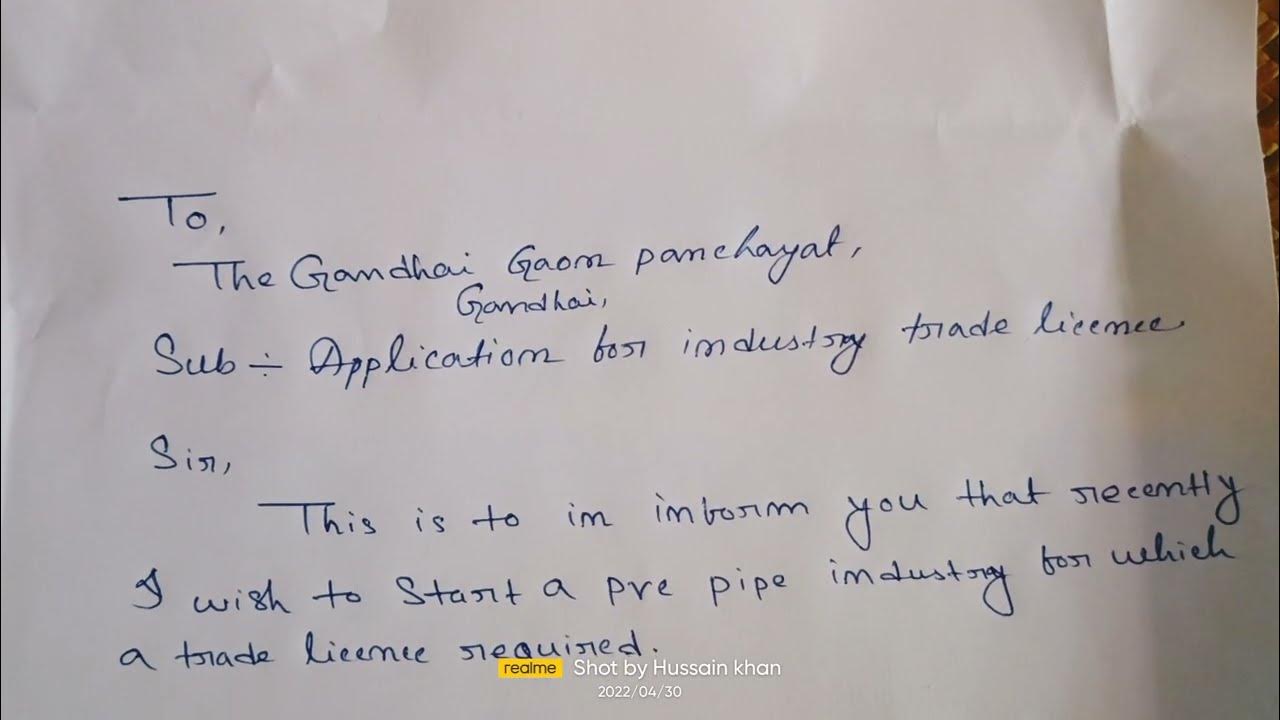 To,
The Gandhai Gaon panchayat,
Gandhai,
Sub ÷ Application for industry trade licence
Sir,
This is to in inform you that recently
I wish to Start a pve pipe industry for which
a trade licence required.
realme Shot by Hussain khan
2022/04/30